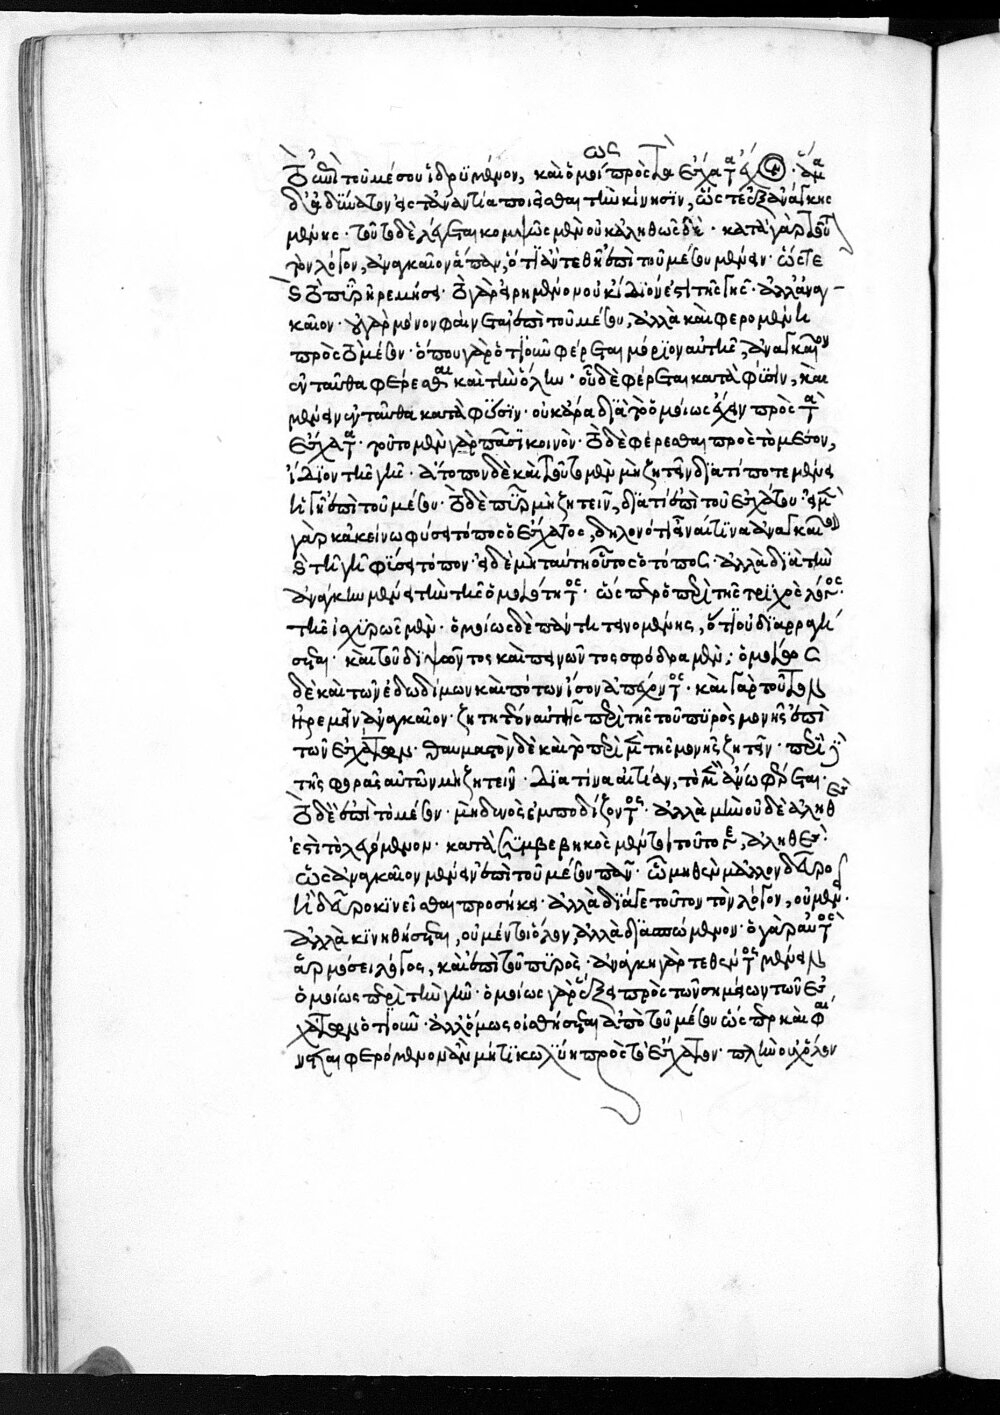 τὸ ἐπὶ τοῦ μέσου ἱδρυμένον, καὶ ὁμοίως πρὸς τὰ ἔσχατα ἔχον· ἅμα
δ' ἀδύνατον εἰς τἀναντία ποιεῖσθαι τὴν κίνησιν, ὥστε ἐξ ἀνάγκης
μένειν. τοῦτο δὲ λέγεται κομψῶς μὲν οὐκ ἀληθῶς δέ· κατὰ γὰρ τοῦτον
τὸν λόγον, ἀναγκαῖον ἅπαν, ὅ τι ἂν τεθῇ ἐπὶ τοῦ μέσου μένειν· ὥστε
καὶ τὸ πῦρ ἠρεμήσει· τὸ γὰρ εἰρημένον οὐκ ἴδιόν ἐστι τῆς γῆς. ἀλλ' ἀναγ-
καῖον· οὐ γὰρ μόνον φαίνεται ἐπὶ τοῦ μέσου, ἀλλὰ καὶ φερομένη
πρὸς τὸ μέσον· ὅπου γὰρ ὁτιοῦν φέρεται μόριον αὐτῆς, ἀναγκαῖον
ἐνταῦθα φέρεσθαι καὶ τὴν ὅλην· οὗ δὲ φέρεται κατὰ φύσιν, καὶ
μένειν ἐνταῦθα κατὰ φύσιν· οὐκ ἄρα διὰ τὸ ὁμοίως ἔχειν πρὸς τὰ
ἔσχατα· τοῦτο μὲν γὰρ πᾶσι κοινόν· τὸ δὲ φέρεσθαι πρὸς τὸ μέσον,
ἴδιον τῆς γῆς. ἄτοπον δὲ καὶ τοῦτο μὲν μὴ ζητεῖν διὰ τί ποτε μένει
ἡ γῆ ἐπὶ τοῦ μέσου· τὸ δὲ πῦρ μὴ ζητεῖν, διὰ τί ἐπὶ τοῦ ἐσχάτου. εἰ μὲν
γὰρ κἀκείνῳ φύσει τόπος ὁ ἔσχατος, δῆλον ὅτι εἶναί τινα ἀναγκαῖον
καὶ τῇ γῇ φύσει τόπον· εἰ δὲ μὴ ταύτῃ οὗτος ὁ τόπος· ἀλλὰ διὰ τὴν
ἀνάγκην μένει τὴν τῆς ὁμοιότητος· ὥσπερ ὁ περὶ τῆς τριχὸς λόγος·
τῆς ἰσχυρῶς μὲν· ὁμοίως δὲ πάντῃ τεινομένης, ὅτι οὐ διαρραγή
σεται· καὶ τοῦ διψῶντος καὶ πεινῶντος σφόδρα μὲν, ὁμοίως
δὲ καὶ τῶν ἐδωδίμων καὶ πότων ἴσον ἀπέχοντος· καὶ γὰρ τοῦτον
ἠρεμεῖν ἀναγκαῖον· ζητητέον αὐτοῖς περὶ τῆς τοῦ πυρὸς μονῆς ἐπὶ
τῶν ἐσχάτων. θαυμαστὸν δὲ καὶ τὸ περὶ μὲν τῆς μονῆς ζητεῖν· περὶ δὲ
τῆς φορᾶς αὐτῶν μὴ ζητεῖν· διὰ τίνα αἰτίαν, τὸ μὲν ἄνω φέρεται·
τὸ δὲ ἐπὶ τὸ μέσον· μηδενὸς ἐμποδίζοντος· ἀλλὰ μὴν οὐδὲ ἀληθές
ἐστι τὸ λεγόμενον. κατὰ συμβεβηκὸς μέντοι τοῦτο, ἀληθές·
ὡς ἀναγκαῖον μένειν ἐπὶ τοῦ μέσου πᾶν· ᾧ μηθὲν μᾶλλον δεῦρο
ἢ δεῦρο κινεῖσθαι προσήκει· ἀλλὰ διά γε τοῦτον τὸν λόγον, οὐ μένει·
ἀλλὰ κινηθήσεται, οὐ μέντοι ὅλον, ἀλλὰ διεσπασμένον· ὁ γὰρ αὐτὸς
ἁρμόσει λόγος, καὶ ἐπὶ τοῦ πυρός· ἀνάγκη γὰρ τεθὲν μένειν
ὁμοίως ὥσπερ τὴν γῆν· ὁμοίως γὰρ ἕξει πρὸς τῶν σημείων τῶν ἐσ
χάτων ὁτιοῦν· ἀλλ' ὅμως οἰσθήσεται ἀπὸ τοῦ μέσου ὥσπερ καὶ φαί
νεται φερόμενον ἂν μή τι κωλύῃ πρὸς τὸ ἔσχατον· πλὴν οὐχ ὅλον